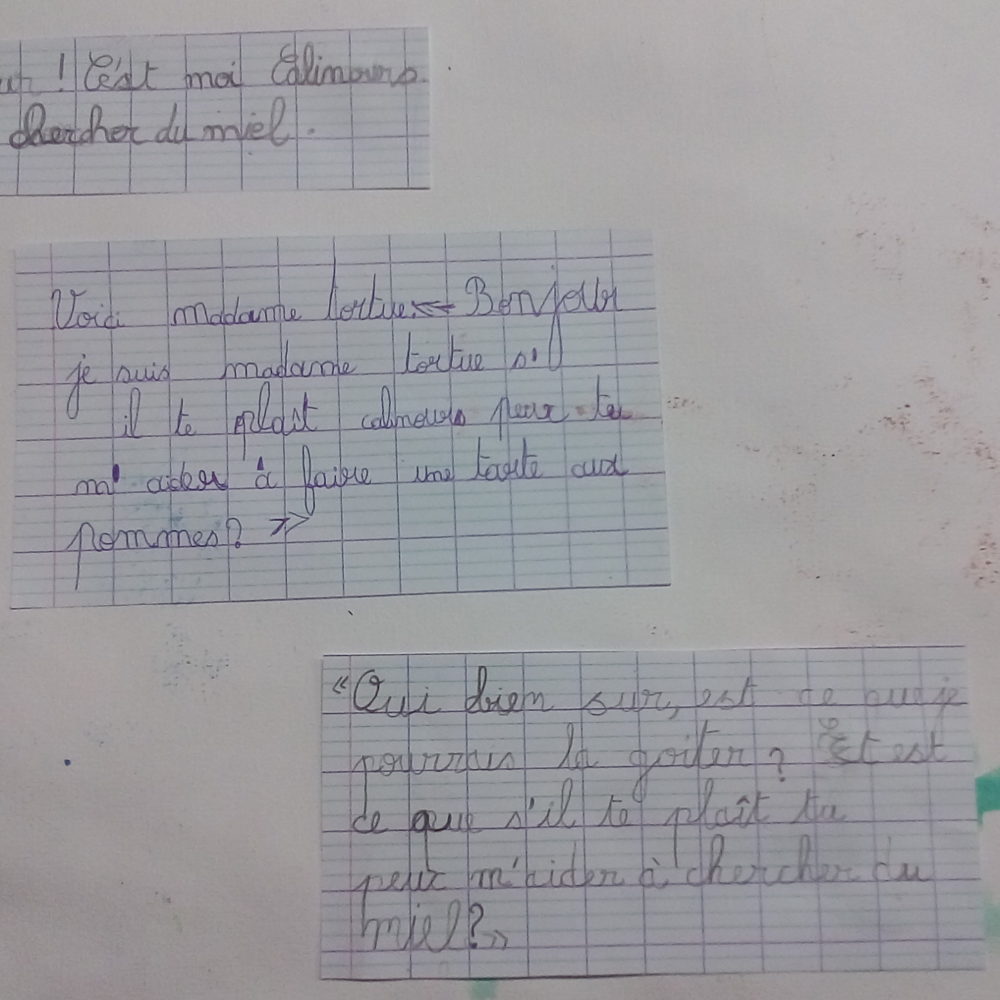 ! C'est moi Calinours.
chercher du miel.
Voici madame tortue « Bonjour
je suis madame tortue s'il
il te plait calinours peux-tu
m'aider à faire une tarte aux
pommes? »
"Oui bien sur, est ce que je
pourrais la goûter? Et est
ce que s'il te plaît tu
peux m'aider à chercher du
miel?»